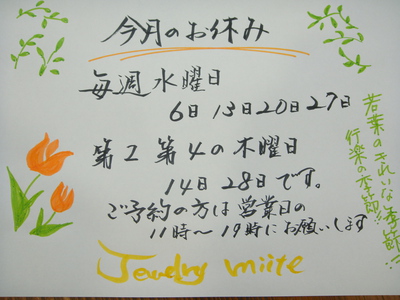 今月のお休み
毎週 水曜日
6日 13日 20日 27日
第2 第4の木曜日
14日 28日です。
ご予約の方は営業日の
11時～19時にお願いします
若葉のきれいな季節!!
行楽の季節!!
Jewelry miite